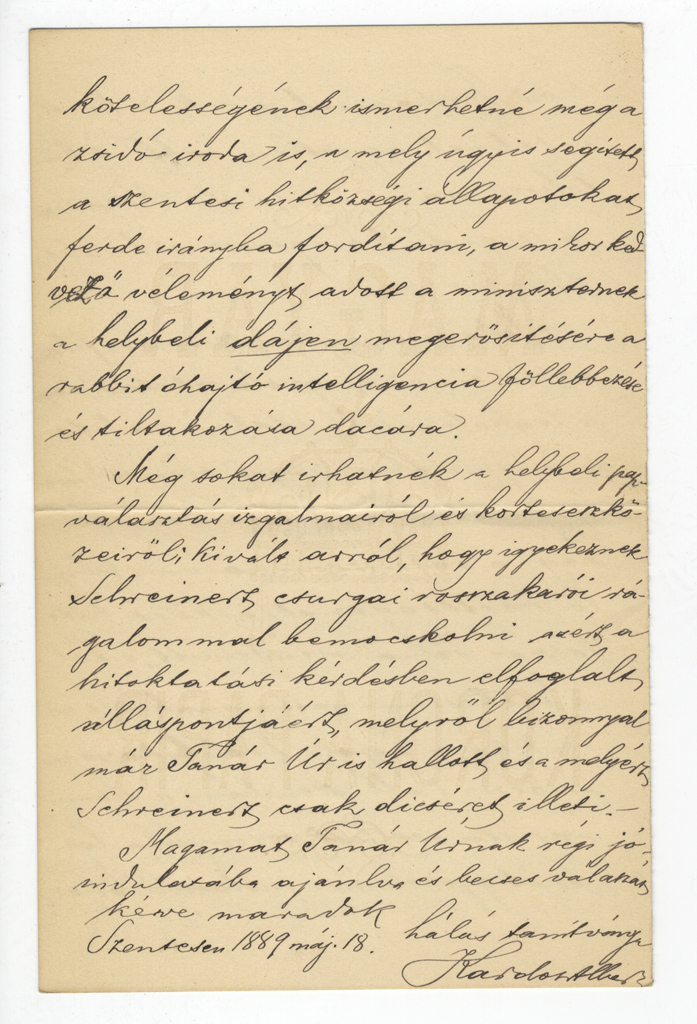 kötelességének ismerhetné még a
zsidó iroda is, a mely úgyis segített
a szentesi hitközségi állapotokat
ferde irányba fordítani, a mikor ked-
vező véleményt adott a miniszternek
a helybeli dájen megerősitésére a
rabbit óhajtó intelligencia föllebbezése
és tiltakozása dacára.
Még sokat irhatnék a helybeli pap-
választás izgalmairól és korteseszkö-
zeiről; kivált arról, hogy igyekeznek
Schreinert csurgai rosszakarói rá-
galommal bemocskolni azért a
hitoktatási kérdésben elfoglalt
álláspontjáért, melyről bizonnyal
már Tanár Úr is hallott és a melyért
Schreinert csak dicséret illeti.-
Magamat Tanár Úrnak régi jó-
indulatába ajánlva és becses válaszát
kérve maradok
Szentesen 1889 máj. 18. hálás tanítványa
Kardos Albert